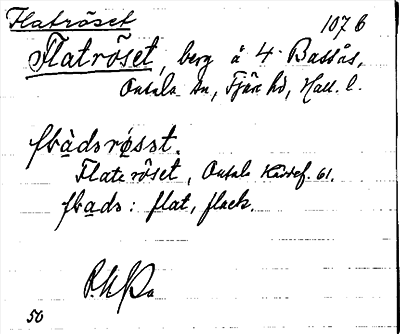 Flatröset 107 b
Flatröset, berg å 4 Bassås,
Onsala sn, Fjäre hd, Hall. l.
fḅàdsrøsst.
Flateröset, Onsala Kärref. 61.
fḅads: flat, flack.
50